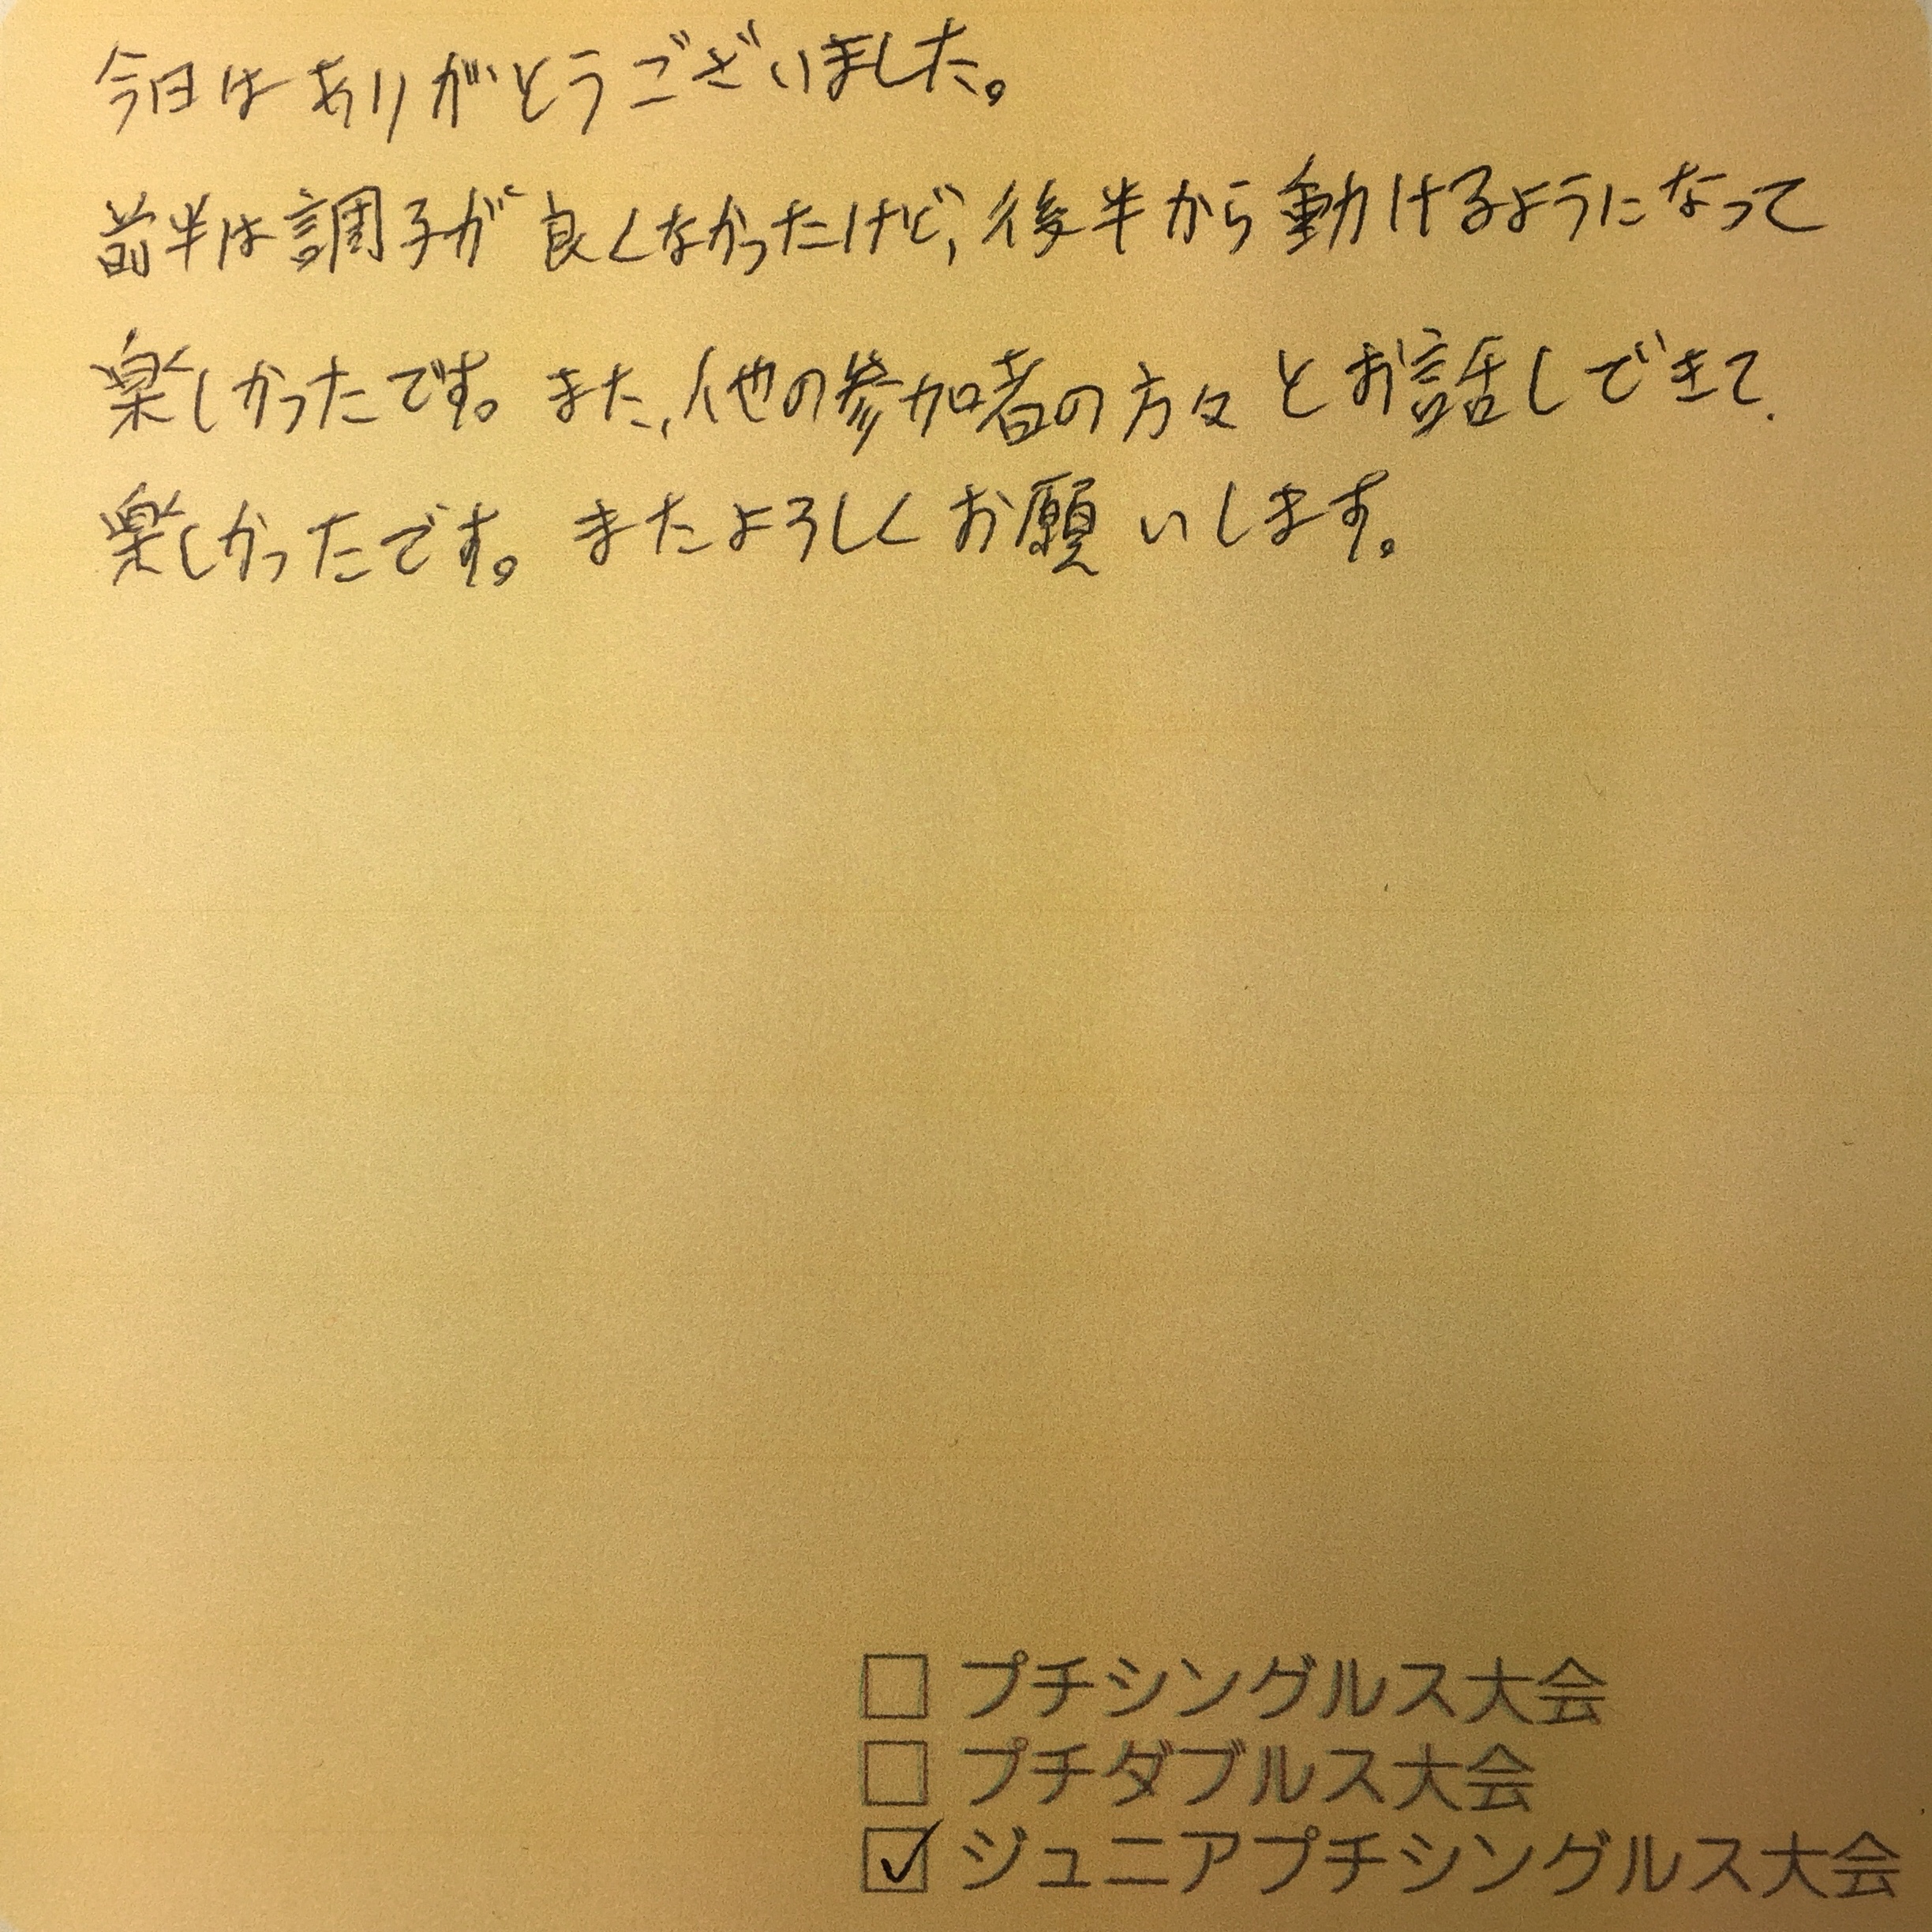 今日はありがとうございました。
前半は調子が良くなかったけど、後半から動けるようになって
楽しかったです。また、他の参加者の方々とお話しできて、
楽しかったです。またよろしくお願いします。
□ プチシングルス大会
□ プチダブルス大会
☑ ジュニアプチシングルス大会